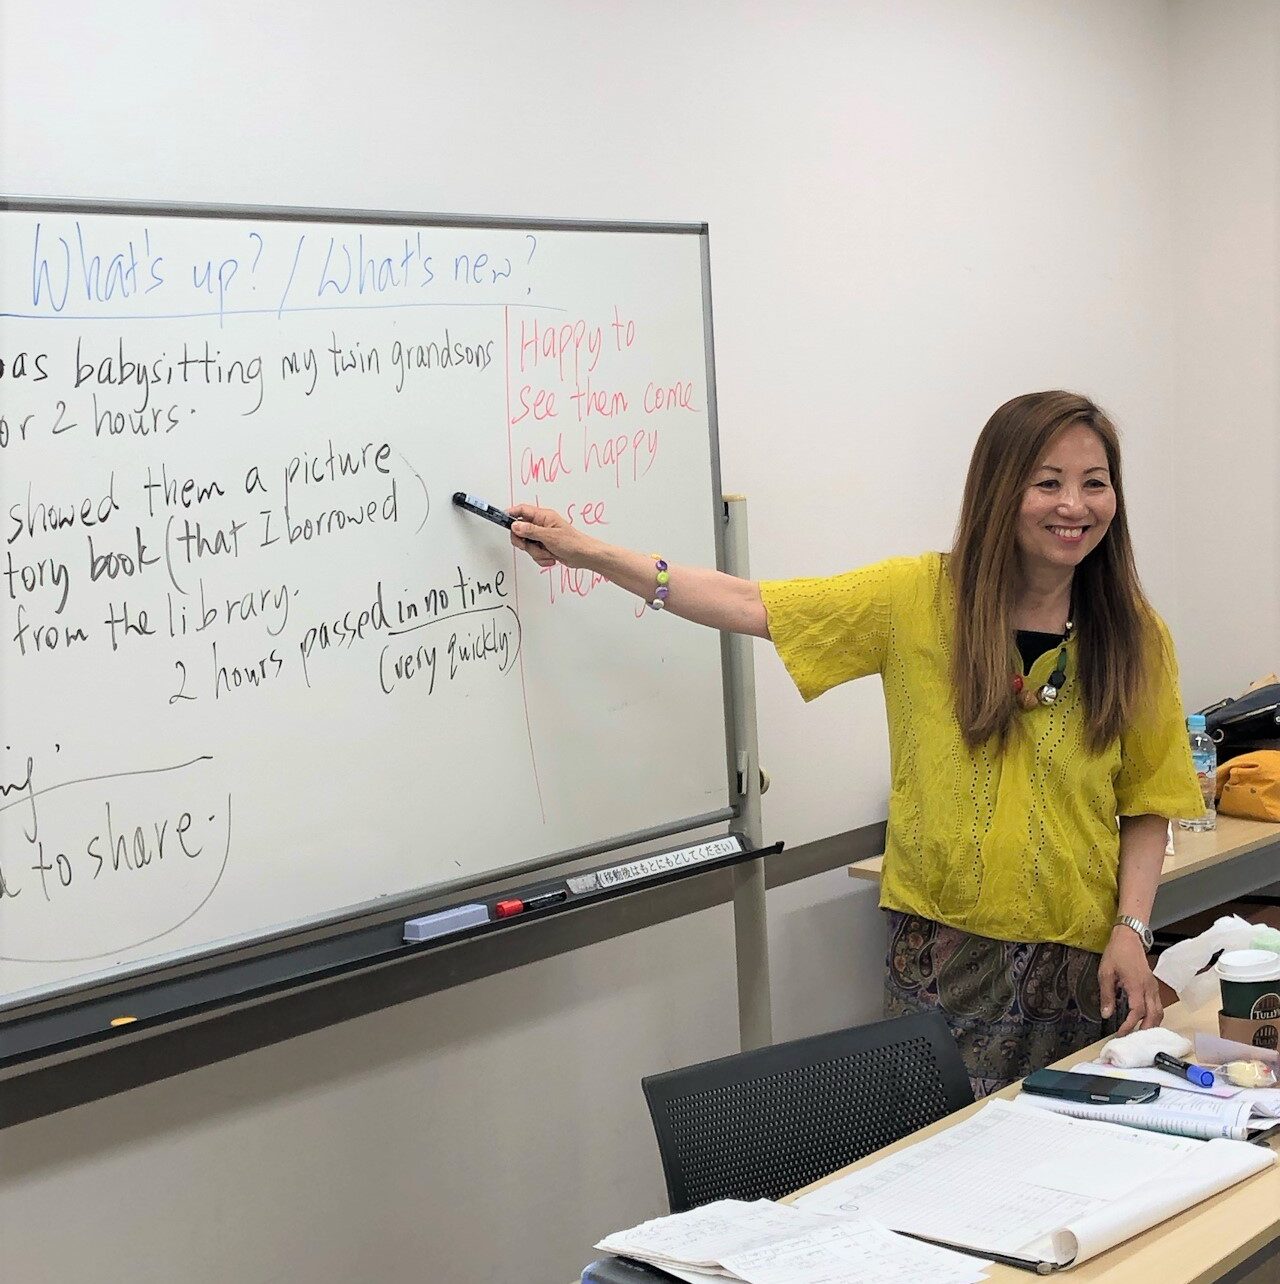 What's up? / What's new?
as babysitting my twin grandsons
or 2 hours.
showed them a picture
tory book (that I borrowed)
from the library.
2 hours passed in no time
(very quickly.)
to share.
Happy to
see them come
and happy
see
them
(移動後はもとにもどしてください)
TULLY'S